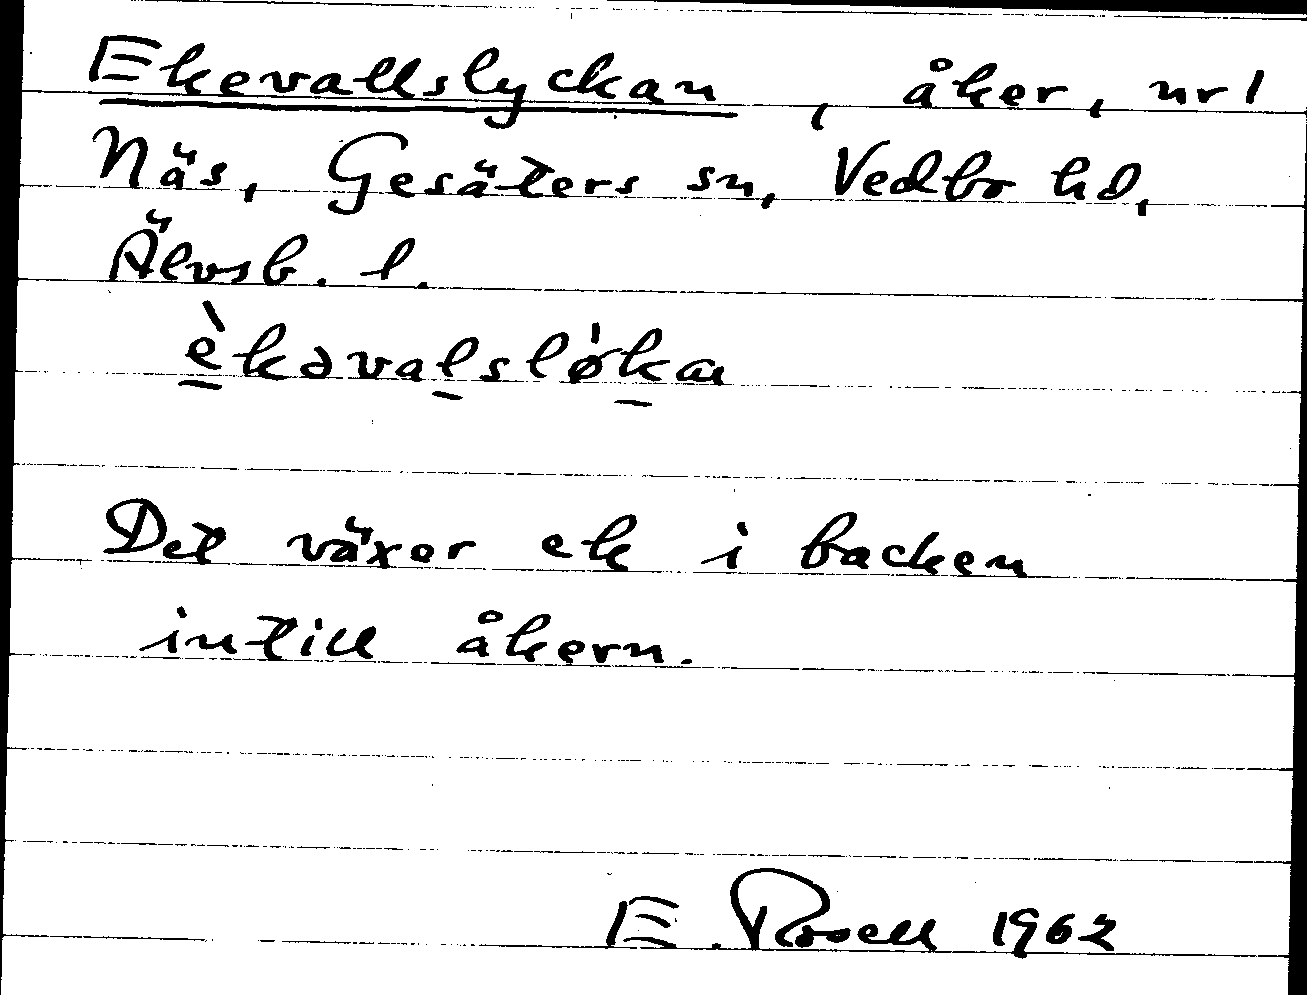 Ekevallslyckan, åker, nr 1
Näs, Gesäters sn, Vedbo hd,
Älvsb. l.
è̱kəvaḻsløˈḵan
Det växer ek i backen
intill åkern.
E. Rosell 1962